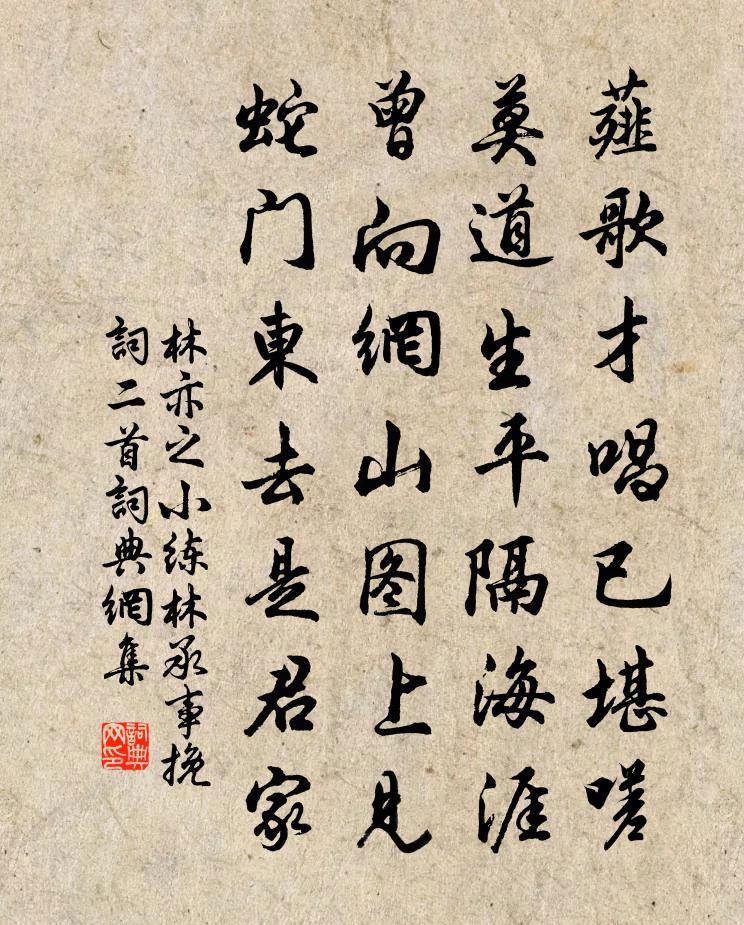 薤歌才唱已堪嗟
莫道生平隔海涯
曾向網山图上見
蛇门東去是君家
林亦之小练林承事挽
詞二首詞典網集
詞典网印